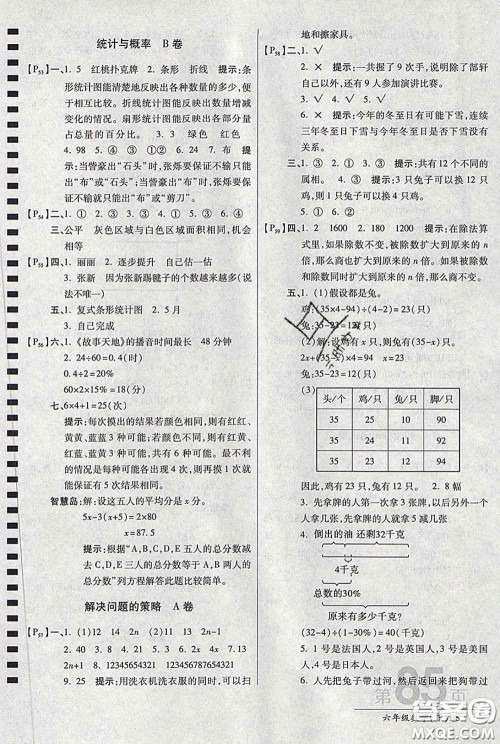 统计与概率 B卷
【P53】一、1. 5 红桃扑克牌 2. 条形 折线 提示:条
形统计图能清楚地反映出各种数量的多少,便
于相互比较。折线统计图能反映出数量增减
变化的情况。扇形统计图能反映出各部分量
占总量的百分比。 3. 3 绿色 红色
4. 98 5. ④ ③ ② ① 6. ④ 7. 布 提示:
当曾豪出“石头”时,张烁要保证不输只能出
“布”或“石头”;当曾豪出“布”时,张烁要保
证不输只能出“布”或“剪刀”。
【P54】二、1. ① 2. ③ 3. ② 4. ② 5. ②
三、公平 灰色区域与白色区域面积相同,机会
均等
【P55】四、1. 丽丽 2. 逐步提升 各自估计
3. 张新 因为张新踢毽子的个数越来越多(说
法不唯一)
五、1. 复式条形统计图 2. ②
3. 自己完成
【P56】六、1.《故事天地》的播音时间最长 48分钟
2. 24÷60=0.4(时)
0.4÷2=20%
3. 60×30%=18(分)
七、6×4+1=25(次)
提示:每次摸出的结果若颜色相同,则有红红、
黄黄、蓝蓝3种可能;若颜色不同,则有红黄、
红蓝、黄蓝3种可能。共有6种可能。最不利
的情况是每种可能都出现4次,再摸1次就
能保证有5次结果相同。
智慧岛:解:设这五人的平均分是x分。
5x-3(x+4)=2×80
x=87.5
提示:根据“A、B、C、D、E五人的总分数减
去C、D、E三人的总分数就是A、B两人的
总分数”列方程解此题比较简单。
解决问题的策略 A卷
【P57】一、1. (1)12 14 (2)24 27
2. 40 3. 20 4. 5 5. 21 6. 37 7. 27
8. 121 12321 12345654321 12345678987654321
9. 25 提示:用洗衣机洗衣服的同时,可以扫
地和擦家具。
【P58】二、1. √
2. × 提示:共握了9次手,说明除了郜轩
自己以外,还有9人参加演讲比赛。
3. √ 4. √
5. × 提示:今年的冬至日有可能下雪,连续
三年冬至日下雪,并不代表今年的冬至日一定
下雪。
三、1. ③ 2. ① 3. ③ 提示:共有12个不同的
属相。 4. ③ 提示:1只兔子可以换12只鸡。
5. ③
【P59】四、1. 2 1600 180 2. × 提示:在除法算
式里,如果除数不变,被除数扩大到原来的n
倍,那么商也扩大到原来的n倍;如果被除数
和除数同时扩大到原来的n倍,那么商不变。
五、1. (1)假设都是兔。
鸡:(35×4-94)÷(4-2)=23(只)
兔:35-23=12(只)
(2)解:设鸡有x只,则兔有(35-x)只。
2x+(35-x)×4=94 x=23
兔:35-23=12(只)
(3)
头/个 鸡/只 兔/只 脚/只
35 25 10 90
35 24 11 92
35 23 12 94
因此,鸡有23只,兔有12只。 2. 8幅
3. 先拿牌的人第一次拿3张牌,以后第二个人
拿几张,先拿牌的人就拿5减几张
4. 倒出的油 还剩32千克
4千克
总数的30%
原来有多少千克?
(32-4)÷(1-30%)=40(千克)
5. 1号是法国人,2号是日本人,3号是美国
人,4号是日本人。
6. 人先带兔子坐船过河,放下兔子后返回,人
第85页